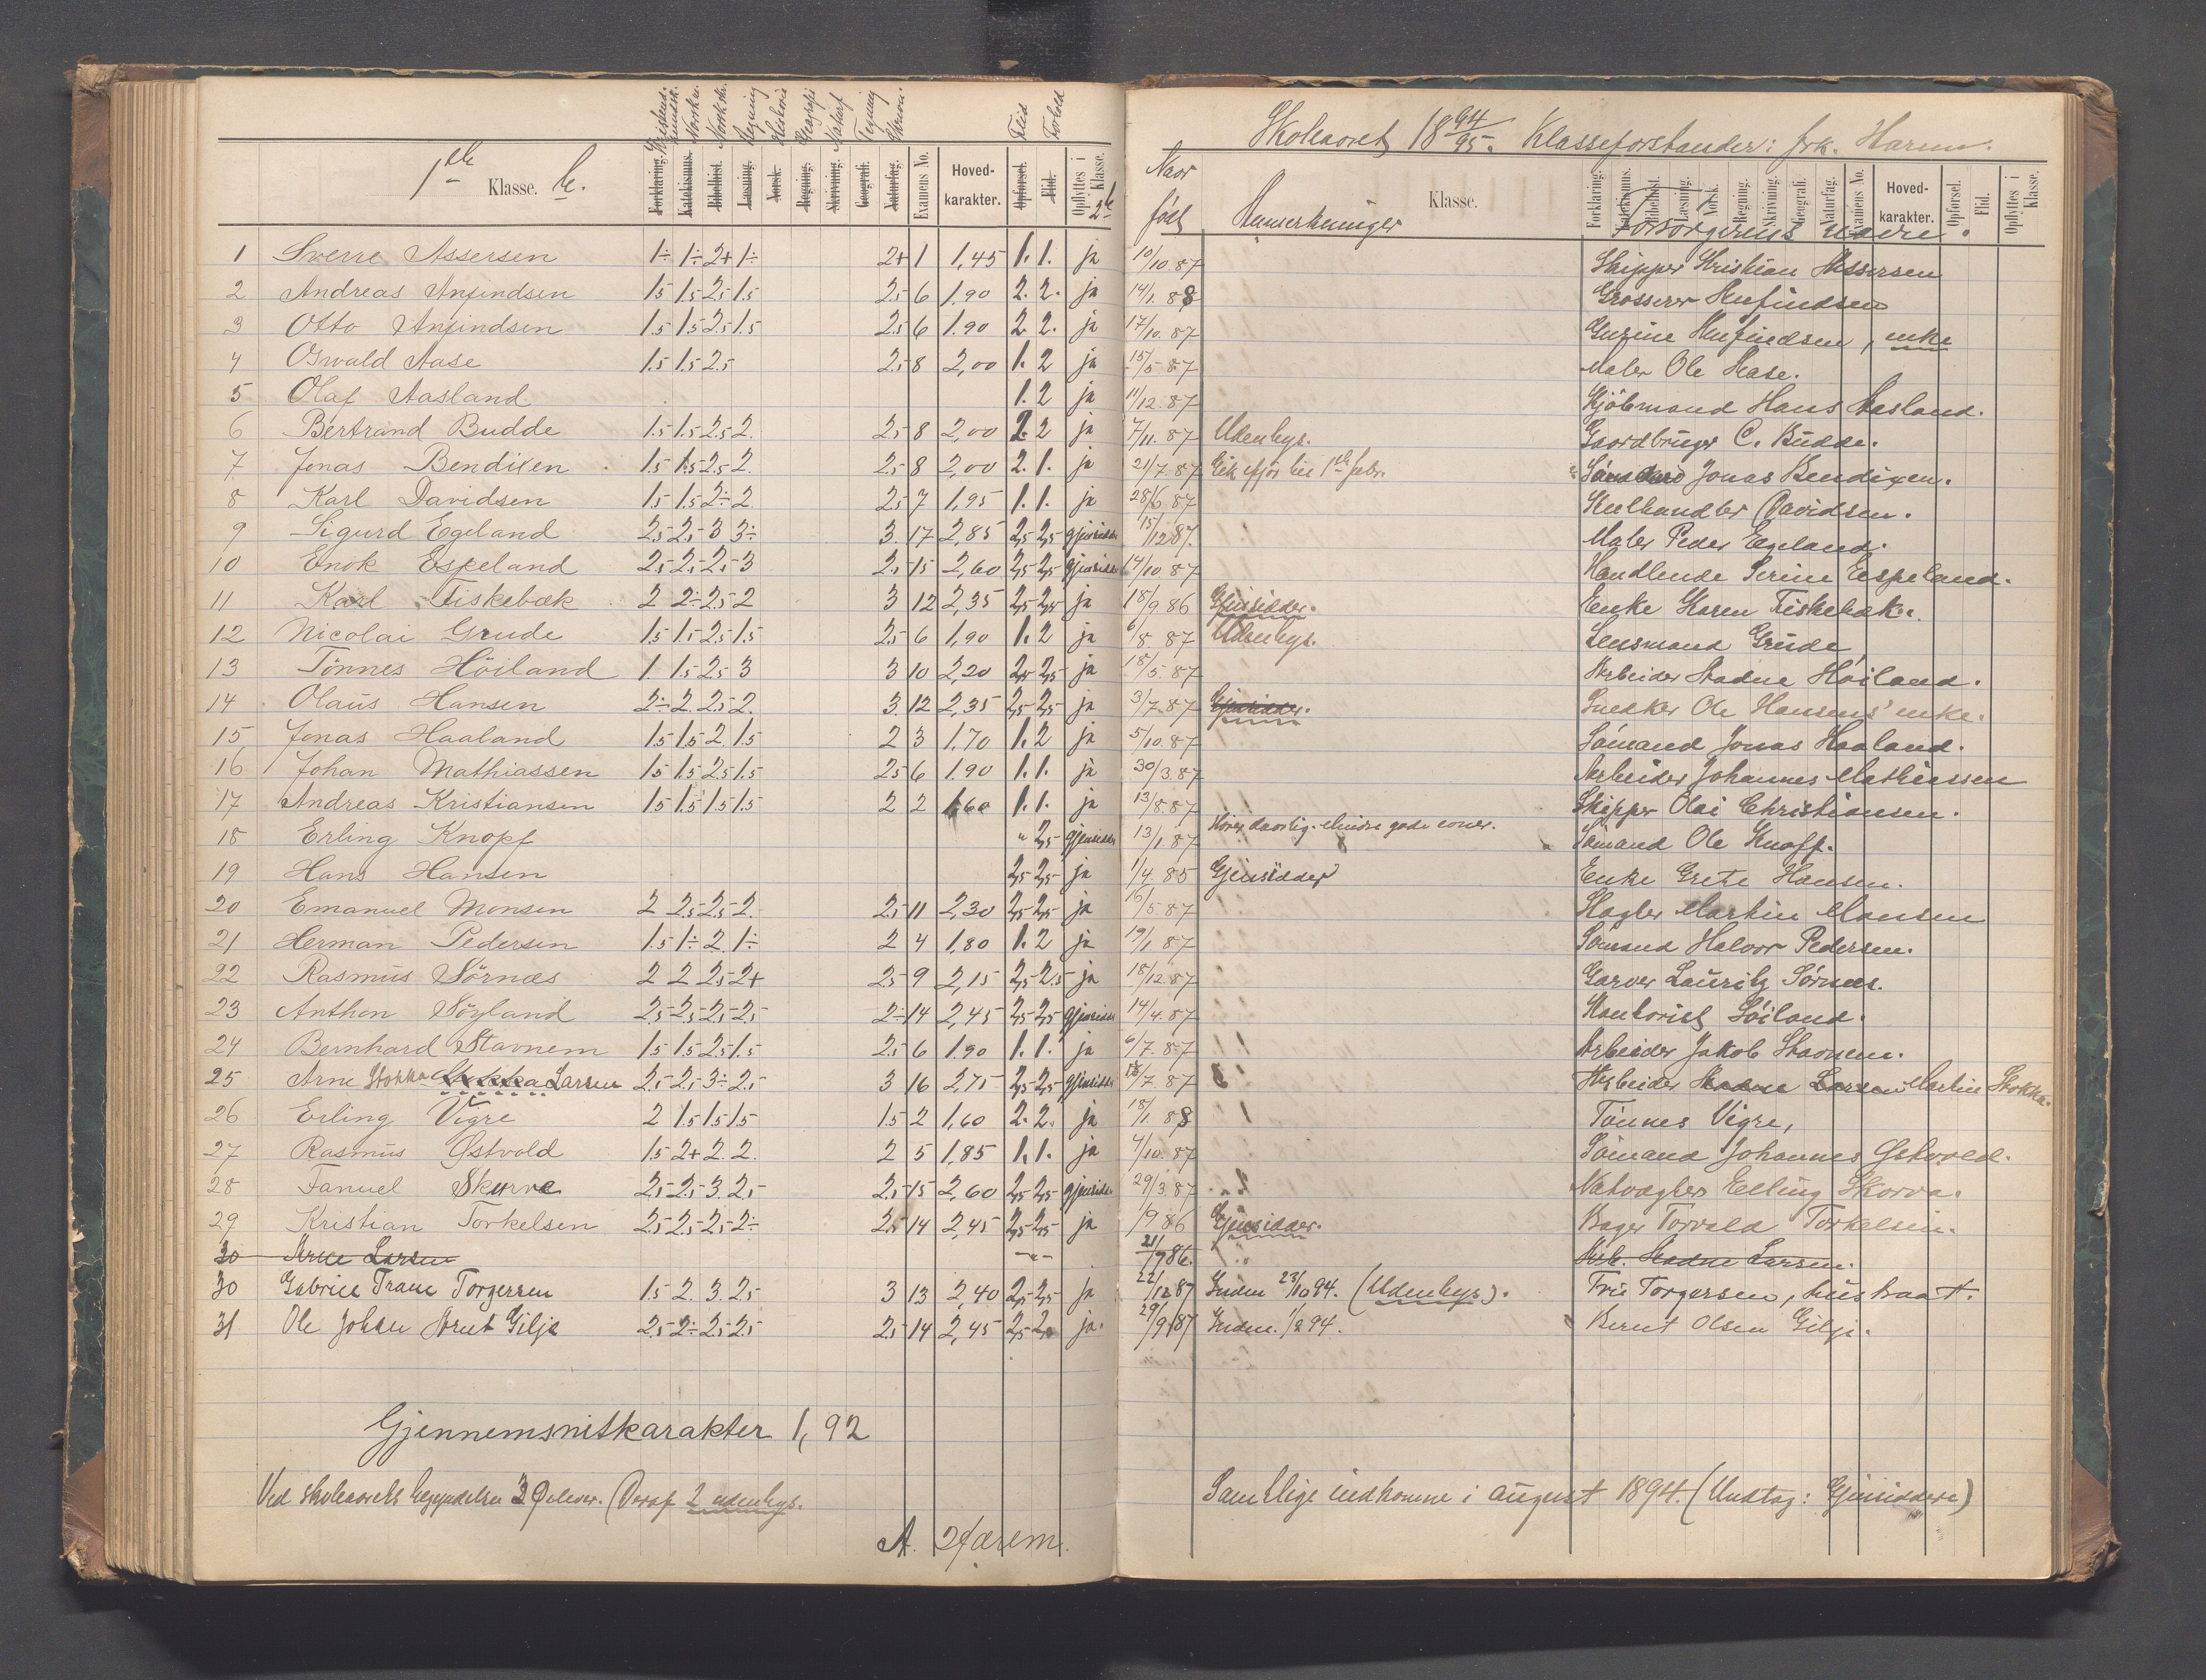 Kristend. kundsk. Norsk m. Norsk skr. Regning Historie Geografi Naturf Tegning Skrivn. Flid Forhold
1ste Klasse. b.
Forklaring. Katekismus. Bibelhist. Læsning. Norsk. Regning. Skrivning. Geografi. Naturfag. Examens No. Hoved-karakter. Opførsel. Flid. Opflyttes i Klasse. 2b
1 Sverre Assersen 1÷ 1÷ 2+ 1÷ 2+ 1 1,45 1. 1. ja
2 Andreas Anfindsen 1.5 1.5 2.5 1.5 2.5 6 1.90 2. 2. ja
3 Otto Anfindsen 1.5 1.5 2.5 1.5 2.5 6 1.90 2. 2. ja
4 Osvald Aase 1.5 1.5 2.5 2.5 8 2,00 1. 2 ja
5 Olaf Aasland 1. 2 ja
6 Bertrand Budde 1.5 1.5 2.5 2. 2.5 8 2,00 2. 2 ja
7 Jonas Bendixen 1.5 1.5 2.5 2. 2.5 8 2,00 2. 1. ja
8 Karl Davidsen 1.5 1.5 2÷ 2 2.5 7 1,95 1. 1. ja
9 Sigurd Egeland 2.5 2.5 3 3÷ 3 17 2,85 2,5 2,5 gjensidder
10 Enok Espeland 2.5 2.5 2.5 3 2.5 15 2,60 2,5 2,5 gjensidder
11 Karl Fiskebæk 2 2÷ 2.5 2 3 12 2,35 2,5 2,5 ja
12 Nicolai Grude 1.5 1.5 2.5 1.5 2.5 6 1,90 1. 2 ja
13 Tönnes Höiland 1. 1.5 2.5 3 3 10 2,20 2,5 2,5 ja
14 Olaus Hansen 2÷ 2. 2.5 2. 3. 12 2,35 2,5 2,5 ja
15 Jonas Haaland 1.5 1.5 2. 1.5 2 3 1,70 1. 2 ja
16 Johan Mathiassen 1.5 1.5 2.5 1.5 2.5 6 1.90 1. 1. ja
17 Andreas Kristiansen 1.5 1.5 1.5 1.5 2 2 1,60 1. 1. ja
18 Erling Knopf " 2,5 gjensidder
19 Hans Hansen 2,5 2,5 ja
20 Emanuel Monsen 2 2.5 2.5 2. 2.5 11 2,30 2,5 2,5 ja
21 Herman Pedersen 1.5 1÷ 2. 1÷ 2 4 1,80 1. 2 ja
22 Rasmus Sörnæs 2 2 2.5 2+ 2.5 9 2,15 2,5 2.5 ja
23 Anthon Söyland 2.5 2.5 2.5 2.5 2÷ 14 2,45 2,5 2,5 gjensidder
24 Bernhard Stavnem 1.5 1.5 2.5 1.5 2.5 6 1.90 1. 1. ja
25 Arne Stokka Larsen 2.5 2.5 3÷ 2.5 3 16 2,75 2,5 2,5 gjensidder
26 Erling Vigre 2 1.5 1.5 1.5 1.5 2 1,60 2. 2. ja
27 Rasmus Østvold 1.5 2+ 2. 2. 2 5 1,85 1. 1. ja
28 Fanuel Skurve 2.5 2.5 3. 2.5 2.5 15 2,60 2,5 2,5 gjensidder
29 Kristian Torkelsen 2.5 2.5 2.5 2÷ 2.5 14 2,45 2,5 2,5 ja
30 Arne Larsen -"-
30 Gabriel Trane Torgersen 1.5 2. 3. 2.5 3 13 2,40 2,5 2,5 ja
31 Ole Johan Bernt Gilje 2.5 2÷ 2.5 2.5 2.5 14 2,45 2,5 ja.
Gjennemsnitkarakter 1,92
Ved skoleaarets begyndelse 30 elever. (Deraf 2 udenbys.
A. Harem.
Skoleaaret 1894/95. Klasseforstander: frk. Harem.
Naar født Anmerkninger Klasse.
Forklaring. Katekismus. Bibelhist. Læsning. Norsk. Regning. Skrivning. Geografi. Naturfag. Examens No. Hoved-karakter. Opførsel. Flid. Opflyttes i Klasse.
Forsørgerens navn.
10/10.87 Skipper Kristian Assersen
14/1.88 Grosserer Anfindsen
17/10.87 Gurine Anfindsen, enke
15/5.87 Maler Ole Aase.
11/12.87 Kjöbmand Hans Aasland.
7/11.87 Udenbys. Gaardbruger C. Budde.
21/7.87 Gik efter til 1ste febr. Jonas Bendixen.
28/6.87 Kulhandler Davidsen.
15/12.87. Maler Peder Egeland.
14/10 87 Handlende Serine Espeland.
18/9 86 Gjensidder. Enke Karen Fiskebæk.
6/8 87 Udenbys. Lensmand Grude
18/5.87 Arbeider Aadne Höiland.
3/7.87 Gjensidder. Snedker Ole Hansens' enke.
5/10.87 Sömand Jonas Haaland.
30/3.87 Arbeider Johannes Mathiassen
13/8.87 Skipper Olai Christiansen.
13/1.87 Hörer daarlig. Mindre gode evner. Sömand Ole Knoff.
1/4.85 Gjensidder Enke Grete Hansen.
16/5.87 Hagler Martin Monsen
19/1 87 Sömand Halvor Pedersen.
18/12.87 Garver Lauritz Sörnæs.
14/4.87 Kontorist Söiland.
6/7.87 Arbeider Jakob Stavnem.
18/7.87 Arbeider Aadne Larsen Martin Stokka.
18/1.88 Tönnes Vigre,
4/10.87 Sömand Johannes Østvold.
29/3.87 Natvægter Elling Skorva.
/9 86 Gjensidder. Bager Torvald Torkelsen.
21/7 86. Arb. Aadne Larsen.
22/12 87 Indm 23/10 94. (Udenbys). Fru Torgersen, husbaat.
29/9.87 Indm. 1/2 94. Bernt Olsen Gilje.
Samtlige indkomne i august 1894. (Undtag: Gjensiddere)